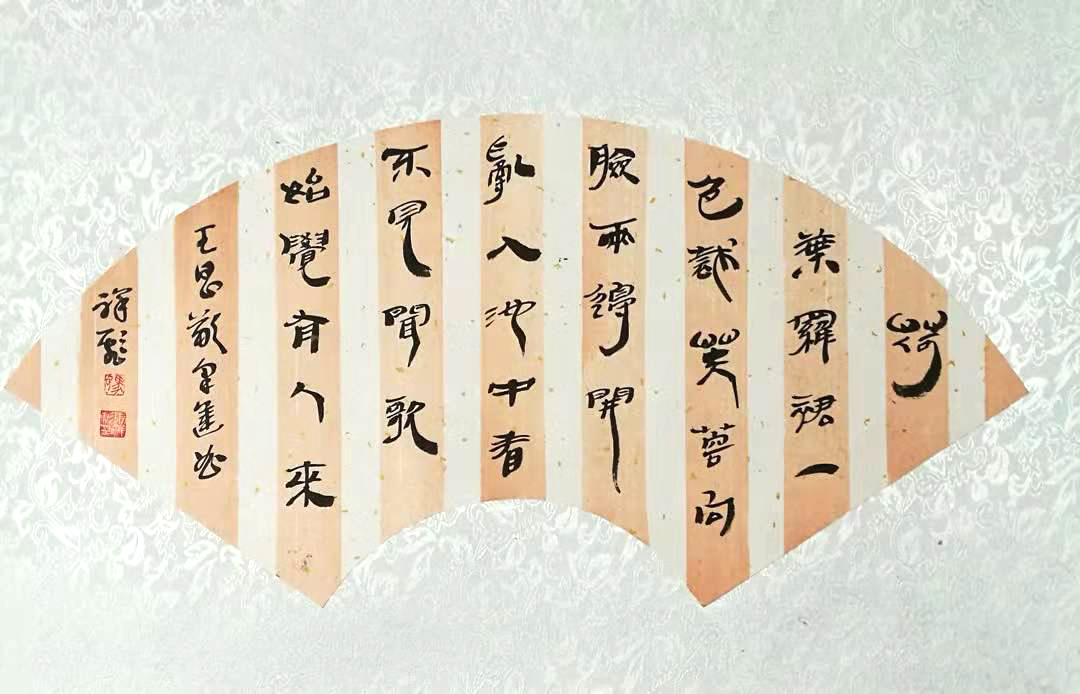 荷
葉羅裙一
色裁芙蓉向
臉兩邊開
亂入池中看
不見聞歌
始覺有人來
王昌齡采蓮曲
祥